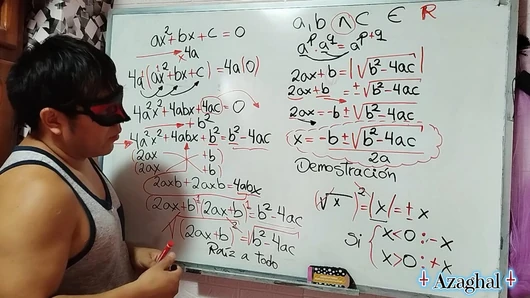 ax²+bx+c=0
x4a
4a(ax²+bx+c)=4a(0)
4a²x²+4abx+4ac=0
+b²
4a²x²+4abx+b²=b²-4ac
(2ax +b)
(2ax +b)
2axb+2axb=4abx
(2ax+b)¹(2ax+b)¹=b²-4ac
√(2ax+b)²=√b²-4ac
Raíz a todo
a,b ∧ C ∈ R
aᵖ·a^q=a^(p+q)
2ax+b=|√b²-4ac|
2ax+b=±√b²-4ac
2ax=-b±√b²-4ac
x=-b±√b²-4ac
2a
Demostración
(√x)²=|x|=±x
Si { x<0:-x
x>0:+x
Azaghal